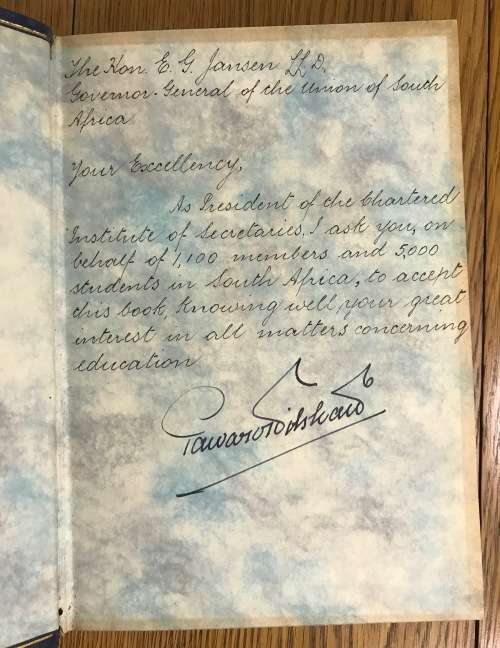 The Hon. E. G. Jansen LL D.
Governor-General of the Union of South
Africa
Your Excellency,
As President of the Chartered
Institute of Secretaries, I ask you, on
behalf of 1,100 members and 5,000
students in South Africa, to accept
this book, knowing well, your great
interest in all matters concerning
education